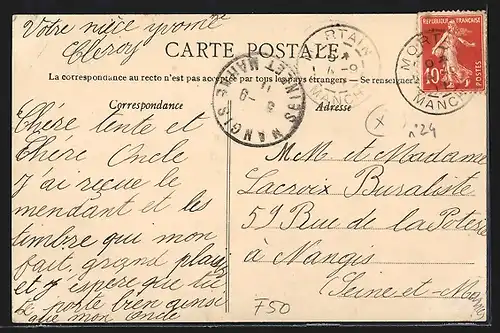 Votre nièce yvonne
Cleroy
CARTE POSTALE
La correspondance au recto n'est pas acceptée par tous les pays étrangers — Se renseigner
Correspondance
Adresse
RÉPUBLIQUE FRANÇAISE
10
POSTES
MORTAIN
MANCHE
MORTAIN
MANCHE
NANGIS
SEINE ET MARNE
n°24
Chére tente et
Chére Oncle
J'ai reçue le
mendant et les
timbre qui mon
fait, grand plaisir
et j'espere que tu
porte bien ainsi
que mon Oncle
M. M et Madame
Lacroix Buraliste
59 Rue de la Poterie
à Nangis
Seine-et-Marne
F50